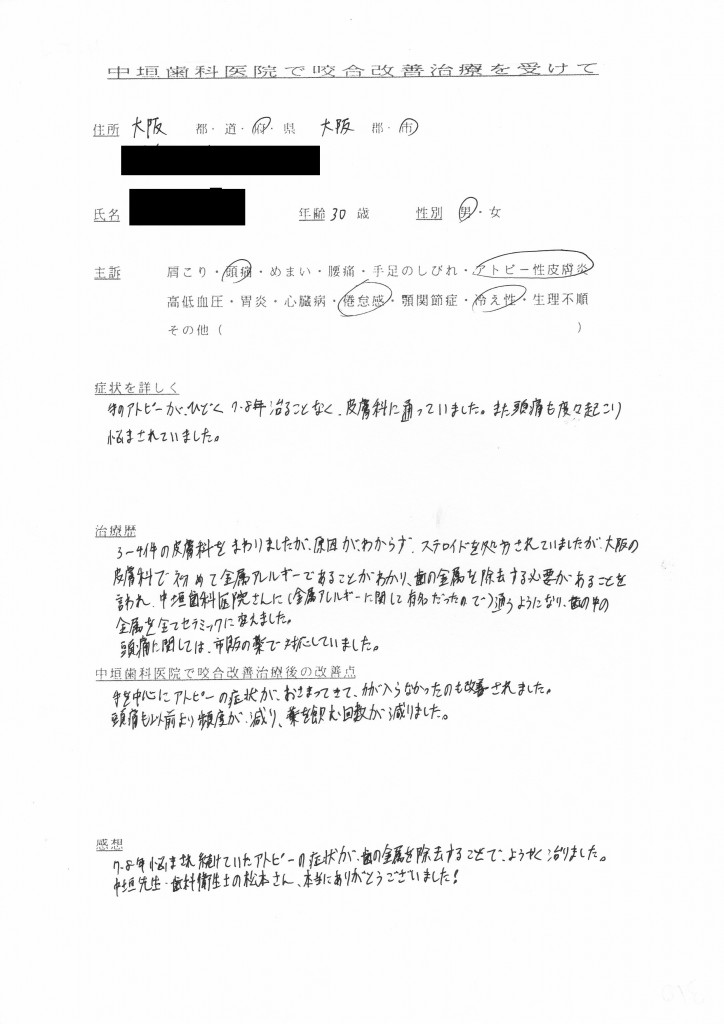 中垣歯科医院で咬合改善治療を受けて
住所 大阪 都・道・府・県 大阪 郡・市
氏名 年齢 30 歳 性別 男・女
主訴 肩こり・頭痛・めまい・腰痛・手足のしびれ・アトピー性皮膚炎
高低血圧・胃炎・心臓病・倦怠感・顎関節症・冷え性・生理不順
その他( )
症状を詳しく
手のアトピーが、ひどく 7-8年治ることなく、皮膚科に通っていました。また頭痛も度々起こり
悩まされていました。
治療歴
3〜4件の皮膚科をまわりましたが、原因が、わからず、ステロイドを処方されていましたが、大阪の
皮膚科で初めて金属アレルギーであることがわかり、歯の金属を除去する必要があることを
言われ、中垣歯科医院さんに(金属アレルギーに関して有名だったので)通うようになり、歯の中の
金属を全てセラミックに変えました。
頭痛に関しては、市販の薬で対応していました。
中垣歯科医院で咬合改善治療後の改善点
手を中心にアトピーの症状が、おさまってきて、力が入らなかったのも改善されました。
頭痛も以前より頻度が減り、薬を飲む回数が減りました。
感想
7-8年悩まされ続けていたアトピーの症状が、歯の金属を除去することで、ようやく治りました。
中垣先生・歯科衛生士の松本さん、本当にありがとうございました!